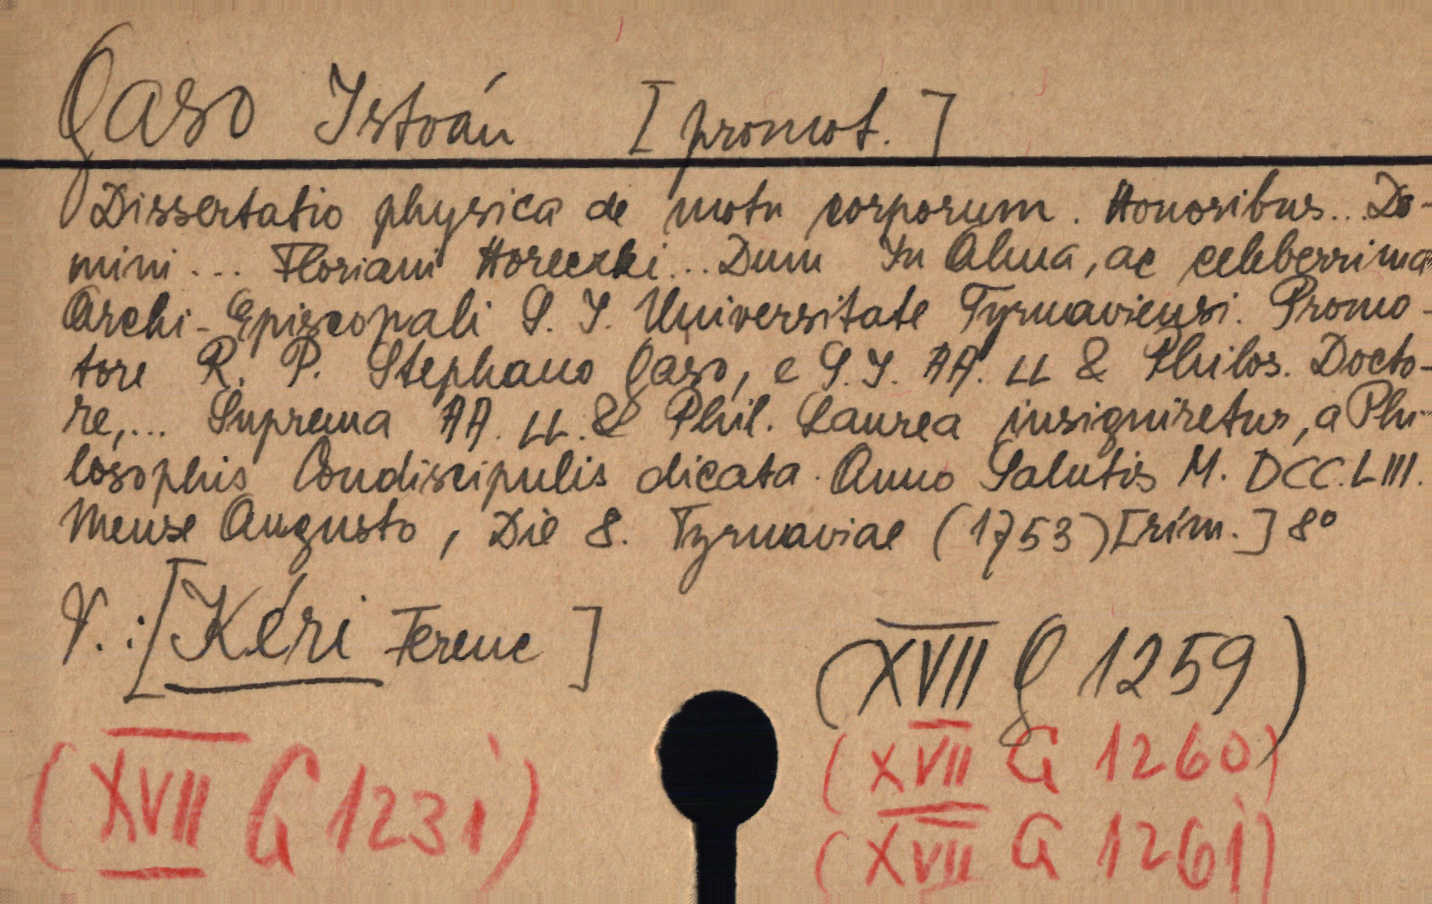 Gaso István [promot.]
Dissertatio physica de motu corporum. Honoribus.. Do-
mini... Floriani Horeczki... Dum In Alma, ac celeberrima
Archi-Episcopali S. J. Universitate Tyrnaviensi. Promo-
tore R. P. Stephano Gaso, e S. J. AA. LL & Philos. Docto-
re,... Suprema AA. LL. & Phil. Laurea insigniretur, a Phi-
losophis Condiscipulis dicata. Anno Salutis M. DCC. LIII.
Mense Augusto, Die 8. Tyrnaviae (1753) [rím.] 8°
V.: [Kéri Ferenc]
(XVII G 1259)
(XVII G 1260)
(XVII G 1231)
(XVII G 1261)